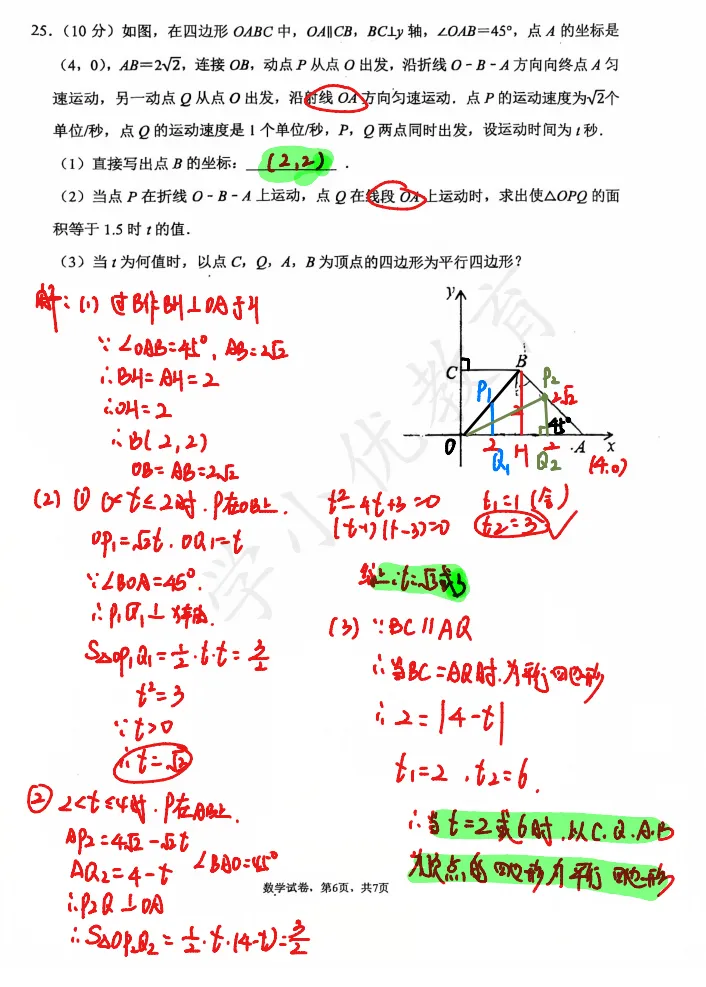 25.(10分)如图，在四边形OABC中，OA∥CB，BC⊥y轴，∠OAB＝45°，点A的坐标是
(4，0)，AB＝2√2，连接OB，动点P从点O出发，沿折线O－B－A方向向终点A匀
速运动，另一动点Q从点O出发，沿射线OA方向匀速运动．点P的运动速度为√2个
单位/秒，点Q的运动速度是1个单位/秒，P，Q两点同时出发，设运动时间为t秒．
(1)直接写出点B的坐标：(2,2)．
(2)当点P在折线O－B－A上运动，点Q在线段OA上运动时，求出使△OPQ的面
积等于1.5时t的值．
(3)当t为何值时，以点C，Q，A，B为顶点的四边形为平行四边形？
解：(1)过B作BH⊥OA于H
∵∠OAB=45°，AB=2√2
∴BH=AH=2
∴OH=2
∴B(2,2)
OB=AB=2√2
(2)① 0<t≤2时．P在OB上．
OP1=√2t．OQ1=t
∵∠BOA=45°．
∴P1Q1⊥x轴．
S△OP1Q1=1/2·t·t=3/2
t²=3
∵t>0
∴t=√3
② 2<t≤4时．P在AB上．
AP2=4√2-√2t
AQ2=4-t ∠BAO=45°
∴P2Q⊥OA
∴S△OP2Q2=1/2·t·(4-t)=3/2
y
C
B
P1
P2
2√2
2
45°
O
2
Q1
H
2
Q2
A
x
(4.0)
t²-4t+3=0 t1=1(舍)
(t-1)(t-3)=0 t2=3
综上：t=√3或3
(3)∵BC∥AQ
∴当BC=AQ时．为平行四边形
∴2=|4-t|
t1=2，t2=6．
∴当t=2或6时，以C.Q.A.B
为顶点的四边形为平行四边形
数学试卷，第6页，共7页
学小优教育